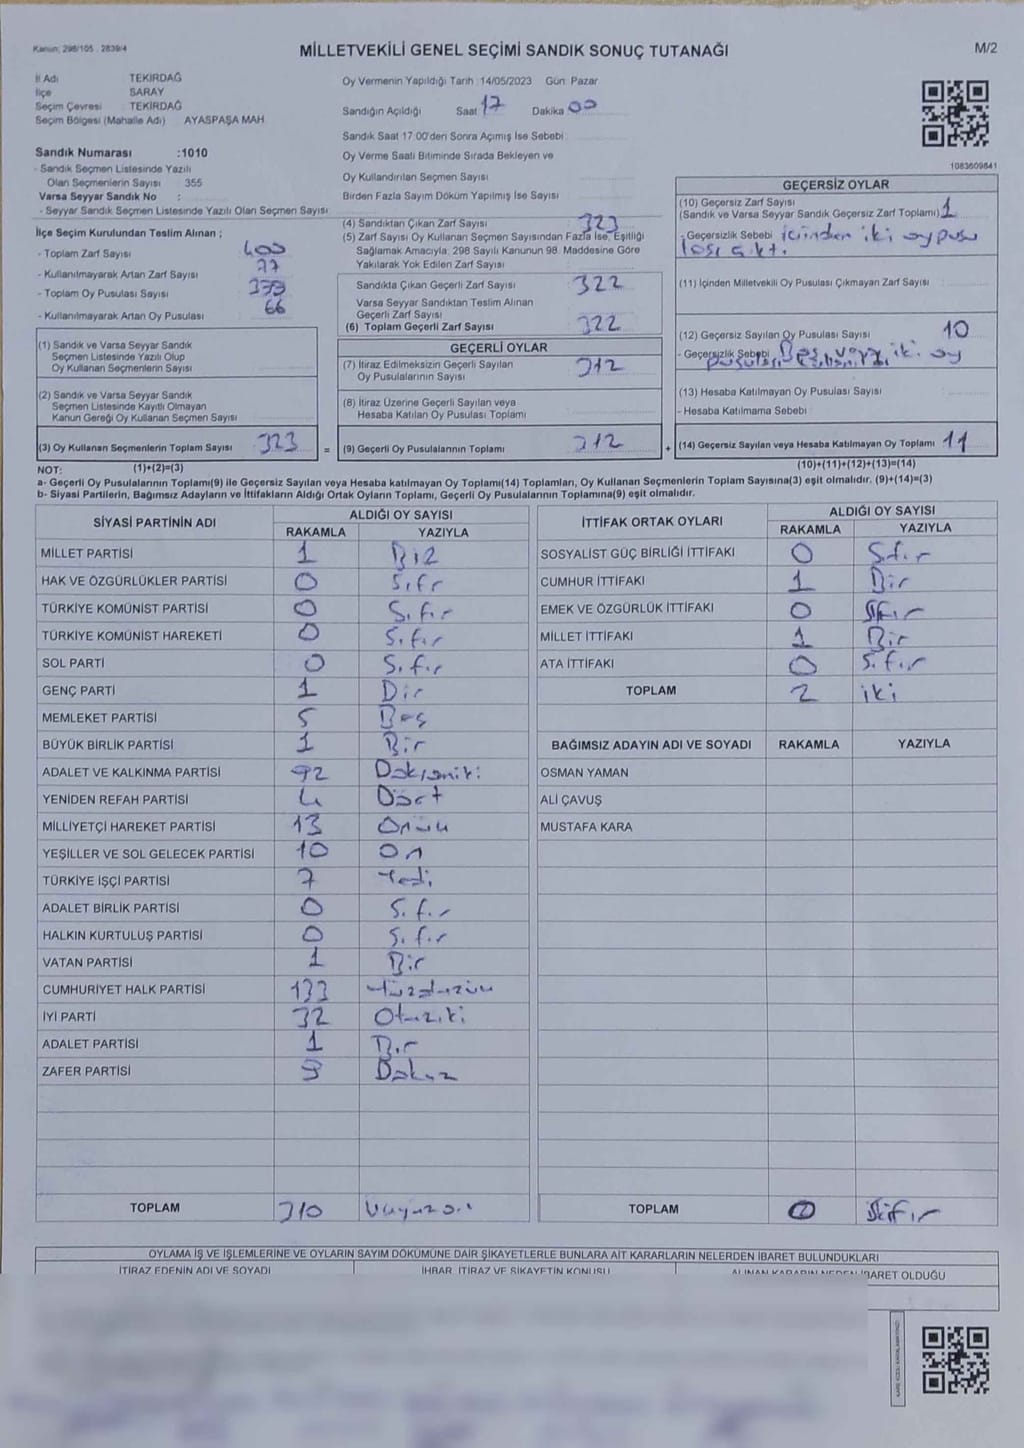 Kanun; 298/105 : 2839/4
MİLLETVEKİLİ GENEL SEÇİMİ SANDIK SONUÇ TUTANAĞI
M/2
İl Adı TEKİRDAĞ
İlçe SARAY
Seçim Çevresi TEKİRDAĞ
Seçim Bölgesi (Mahalle Adı) AYASPAŞA MAH.
Oy Vermenin Yapıldığı Tarih : 14/05/2023 Gün: Pazar
Sandığın Açıldığı Saat 17 Dakika 00
Sandık Saat 17.00'den Sonra Açılmış İse Sebebi
Oy Verme Saati Bitiminde Sırada Bekleyen ve
Oy Kullandırılan Seçmen Sayısı
Birden Fazla Sayım Döküm Yapılmış İse Sayısı
1083609841
Sandık Numarası :1010
- Sandık Seçmen Listesinde Yazılı
Olan Seçmenlerin Sayısı : 355
Varsa Seyyar Sandık No :
- Seyyar Sandık Seçmen Listesinde Yazılı Olan Seçmen Sayısı
İlçe Seçim Kurulundan Teslim Alınan ;
- Toplam Zarf Sayısı 400
- Kullanılmayarak Artan Zarf Sayısı 77
- Toplam Oy Pusulası Sayısı
- Kullanılmayarak Artan Oy Pusulası 66
(1) Sandık ve Varsa Seyyar Sandık
Seçmen Listesinde Yazılı Olup
Oy Kullanan Seçmenlerin Sayısı
(2) Sandık ve Varsa Seyyar Sandık
Seçmen Listesinde Kayıtlı Olmayan
Kanun Gereği Oy Kullanan Seçmen Sayısı
(3) Oy Kullanan Seçmenlerin Toplam Sayısı 323 =
(4) Sandıktan Çıkan Zarf Sayısı 323
(5) Zarf Sayısı Oy Kullanan Seçmen Sayısından Fazla İse, Eşitliği
Sağlamak Amacıyla; 298 Sayılı Kanunun 98. Maddesine Göre
Yakılarak Yok Edilen Zarf Sayısı
Sandıkta Çıkan Geçerli Zarf Sayısı 322
Varsa Seyyar Sandıktan Teslim Alınan
Geçerli Zarf Sayısı
(6) Toplam Geçerli Zarf Sayısı 322
GEÇERLİ OYLAR
(7) İtiraz Edilmeksizin Geçerli Sayılan
Oy Pusulalarının Sayısı 312
(8) İtiraz Üzerine Geçerli Sayılan veya
Hesaba Katılan Oy Pusulası Toplamı
(9) Geçerli Oy Pusulalarının Toplamı 312 +
GEÇERSİZ OYLAR
(10) Geçersiz Zarf Sayısı
(Sandık ve Varsa Seyyar Sandık Geçersiz Zarf Toplamı) 1
- Geçersizlik Sebebi içinden iki oy pusu
lası çıktı.
(11) İçinden Milletvekili Oy Pusulası Çıkmayan Zarf Sayısı
(12) Geçersiz Sayılan Oy Pusulası Sayısı 10
- Geçersizlik Sebebi Beş veya iki oy
pusulası
(13) Hesaba Katılmayan Oy Pusulası Sayısı
- Hesaba Katılmama Sebebi
(14) Geçersiz Sayılan veya Hesaba Katılmayan Oy Toplamı 11
NOT: (1)+(2)=(3)
(10)+(11)+(12)+(13)=(14)
a- Geçerli Oy Pusulalarının Toplamı(9) ile Geçersiz Sayılan veya Hesaba katılmayan Oy Toplamı(14) Toplamları, Oy Kullanan Seçmenlerin Toplam Sayısına(3) eşit olmalıdır. (9)+(14)=(3)
b- Siyasi Partilerin, Bağımsız Adayların ve İttifakların Aldığı Ortak Oyların Toplamı, Geçerli Oy Pusulalarının Toplamına(9) eşit olmalıdır.
SİYASİ PARTİNİN ADI ALDIĞI OY SAYISI
RAKAMLA YAZIYLA
MİLLET PARTİSİ 1 Bir
HAK VE ÖZGÜRLÜKLER PARTİSİ 0 Sıfır
TÜRKİYE KOMÜNİST PARTİSİ 0 Sıfır
TÜRKİYE KOMÜNİST HAREKETİ 0 Sıfır
SOL PARTİ 0 Sıfır
GENÇ PARTİ 1 Bir
MEMLEKET PARTİSİ 5 Beş
BÜYÜK BİRLİK PARTİSİ 1 Bir
ADALET VE KALKINMA PARTİSİ 92 Doksaniki
YENİDEN REFAH PARTİSİ 4 Dört
MİLLİYETÇİ HAREKET PARTİSİ 13 Onüç
YEŞİLLER VE SOL GELECEK PARTİSİ 10 On
TÜRKİYE İŞÇİ PARTİSİ 7 Yedi
ADALET BİRLİK PARTİSİ 0 Sıfır
HALKIN KURTULUŞ PARTİSİ 0 Sıfır
VATAN PARTİSİ 1 Bir
CUMHURİYET HALK PARTİSİ 133 Yüzotuzüç
İYİ PARTİ 32 Otuziki
ADALET PARTİSİ 1 Bir
ZAFER PARTİSİ 9 Dokuz
TOPLAM 310 Üçyüzon
İTTİFAK ORTAK OYLARI ALDIĞI OY SAYISI
RAKAMLA YAZIYLA
SOSYALİST GÜÇ BİRLİĞİ İTTİFAKI 0 Sıfır
CUMHUR İTTİFAKI 1 Bir
EMEK VE ÖZGÜRLÜK İTTİFAKI 0 Sıfır
MİLLET İTTİFAKI 1 Bir
ATA İTTİFAKI 0 Sıfır
TOPLAM 2 iki
BAĞIMSIZ ADAYIN ADI VE SOYADI RAKAMLA YAZIYLA
OSMAN YAMAN
ALİ ÇAVUŞ
MUSTAFA KARA
TOPLAM 0 Sıfır
OYLAMA İŞ VE İŞLEMLERİNE VE OYLARIN SAYIM DÖKÜMÜNE DAİR ŞİKAYETLERLE BUNLARA AİT KARARLARIN NELERDEN İBARET BULUNDUKLARI
İTİRAZ EDENİN ADI VE SOYADI İHBAR, İTİRAZ VE ŞİKAYETİN KONUSU ALINAN KARARIN NEDEN İBARET OLDUĞU